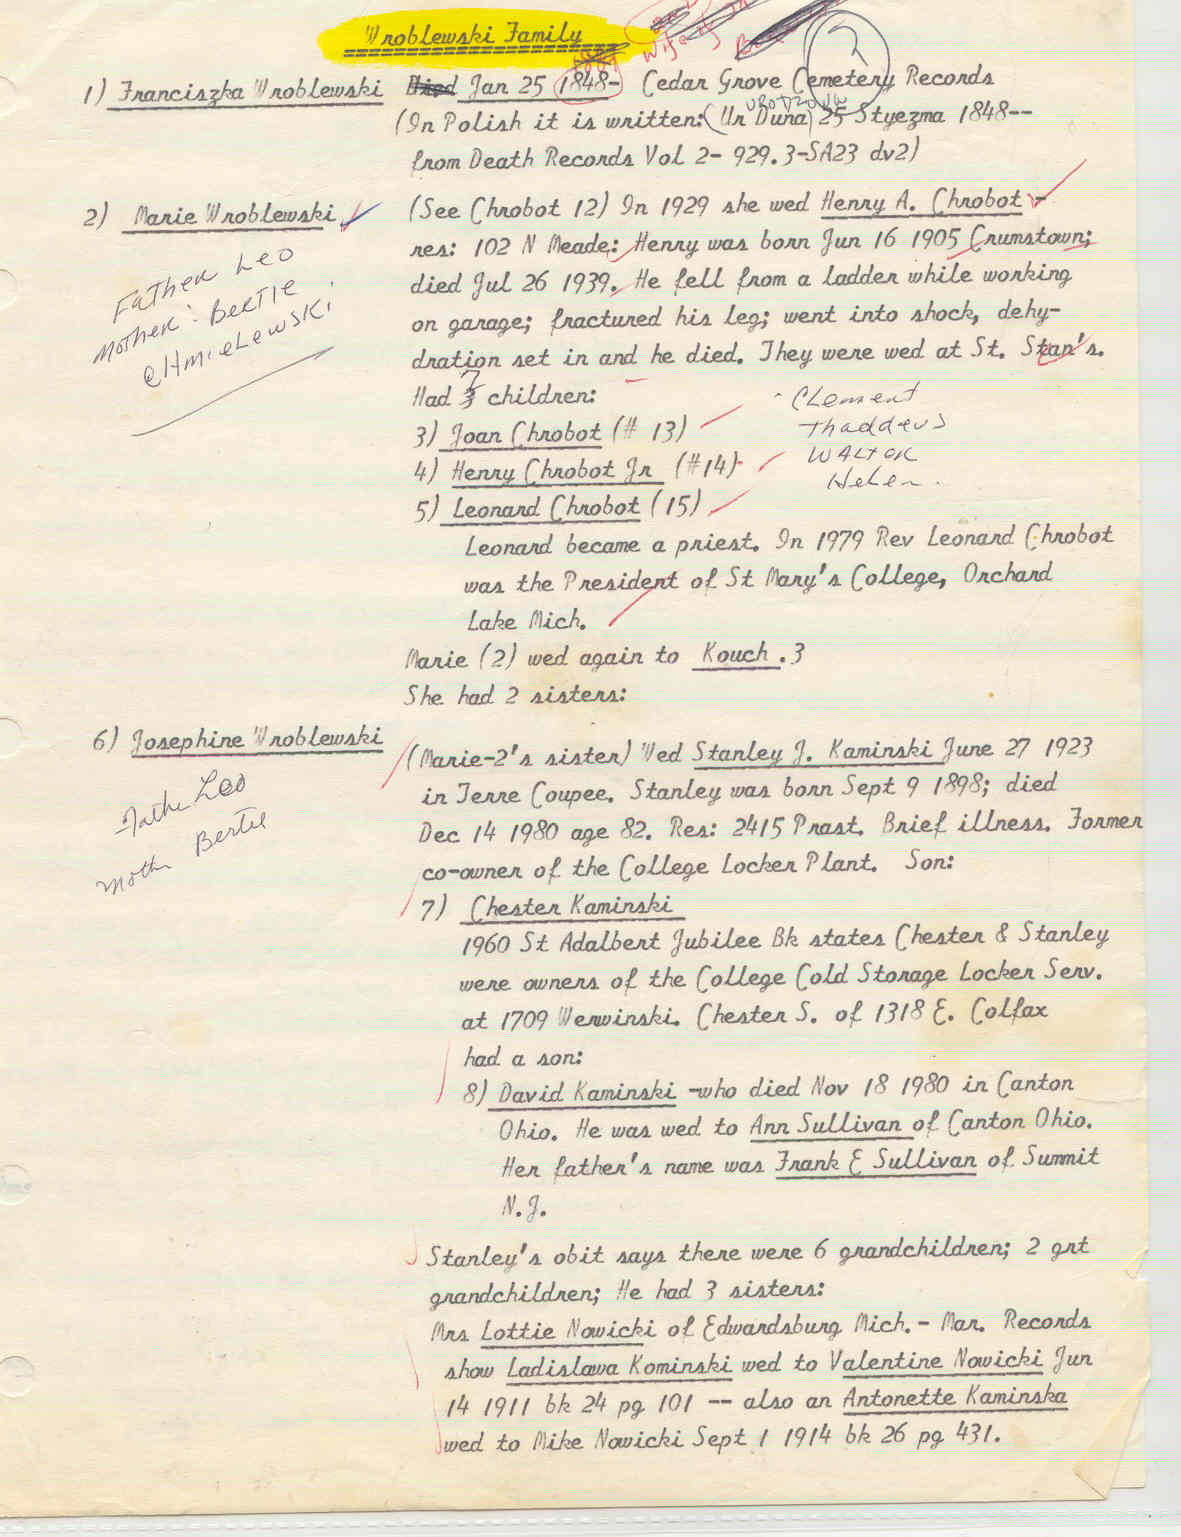 Wroblewski Family
Wife of
1) Franciszka Wroblewski Died Jan 25 1848- Cedar Grove Cemetery Records
(In Polish it is written:(Ur Duna) 25 Styezma 1848--
from Death Records Vol 2- 929.3-SA23 dv2)
2) Marie Wroblewski (See Chrobot 12) In 1929 she wed Henry A. Chrobot -
res: 102 N Meade; Henry was born Jun 16 1905 Crumstown;
died Jul 26 1939. He fell from a ladder while working
on garage; fractured his leg; went into shock, dehy-
dration set in and he died. They were wed at St. Stan's.
Had 7 children:
Father Leo
Mother: Bertie
CHmieLewSKi
3) Joan Chrobot (# 13)
4) Henry Chrobot Jr (#14)
5) Leonard Chrobot (15)
Clement
Thaddeus
Walter
Helen.
Leonard became a priest. In 1979 Rev Leonard Chrobot
was the President of St Mary's College, Orchard
Lake Mich.
Marie (2) wed again to Kouch .3
She had 2 sisters:
6) Josephine Wroblewski (Marie-2's sister) Wed Stanley J. Kaminski June 27 1923
in Terre Coupee. Stanley was born Sept 9 1898; died
Dec 14 1980 age 82. Res: 2415 Prast. Brief illness. Former
co-owner of the College Locker Plant. Son:
Fathe Leo
Moth Bertie
7) Chester Kaminski
1960 St Adalbert Jubilee Bk states Chester & Stanley
were owners of the College Cold Storage Locker Serv.
at 1709 Werwinski. Chester S. of 1318 E. Colfax
had a son:
8) David Kaminski -who died Nov 18 1980 in Canton
Ohio. He was wed to Ann Sullivan of Canton Ohio.
Her father's name was Frank E Sullivan of Summit
N.J.
Stanley's obit says there were 6 grandchildren; 2 grt
grandchildren; He had 3 sisters:
Mrs Lottie Nowicki of Edwardsburg Mich.- Mar. Records
show Ladislawa Kominski wed to Valentine Nowicki Jun
14 1911 bk 24 pg 101 -- also an Antonette Kaminska
wed to Mike Nowicki Sept 1 1914 bk 26 pg 431.